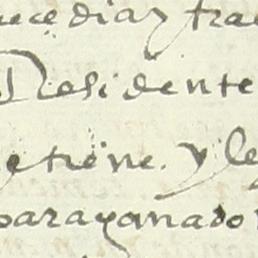 uece diaz fra
Residente
e tiene. y le
para ganado